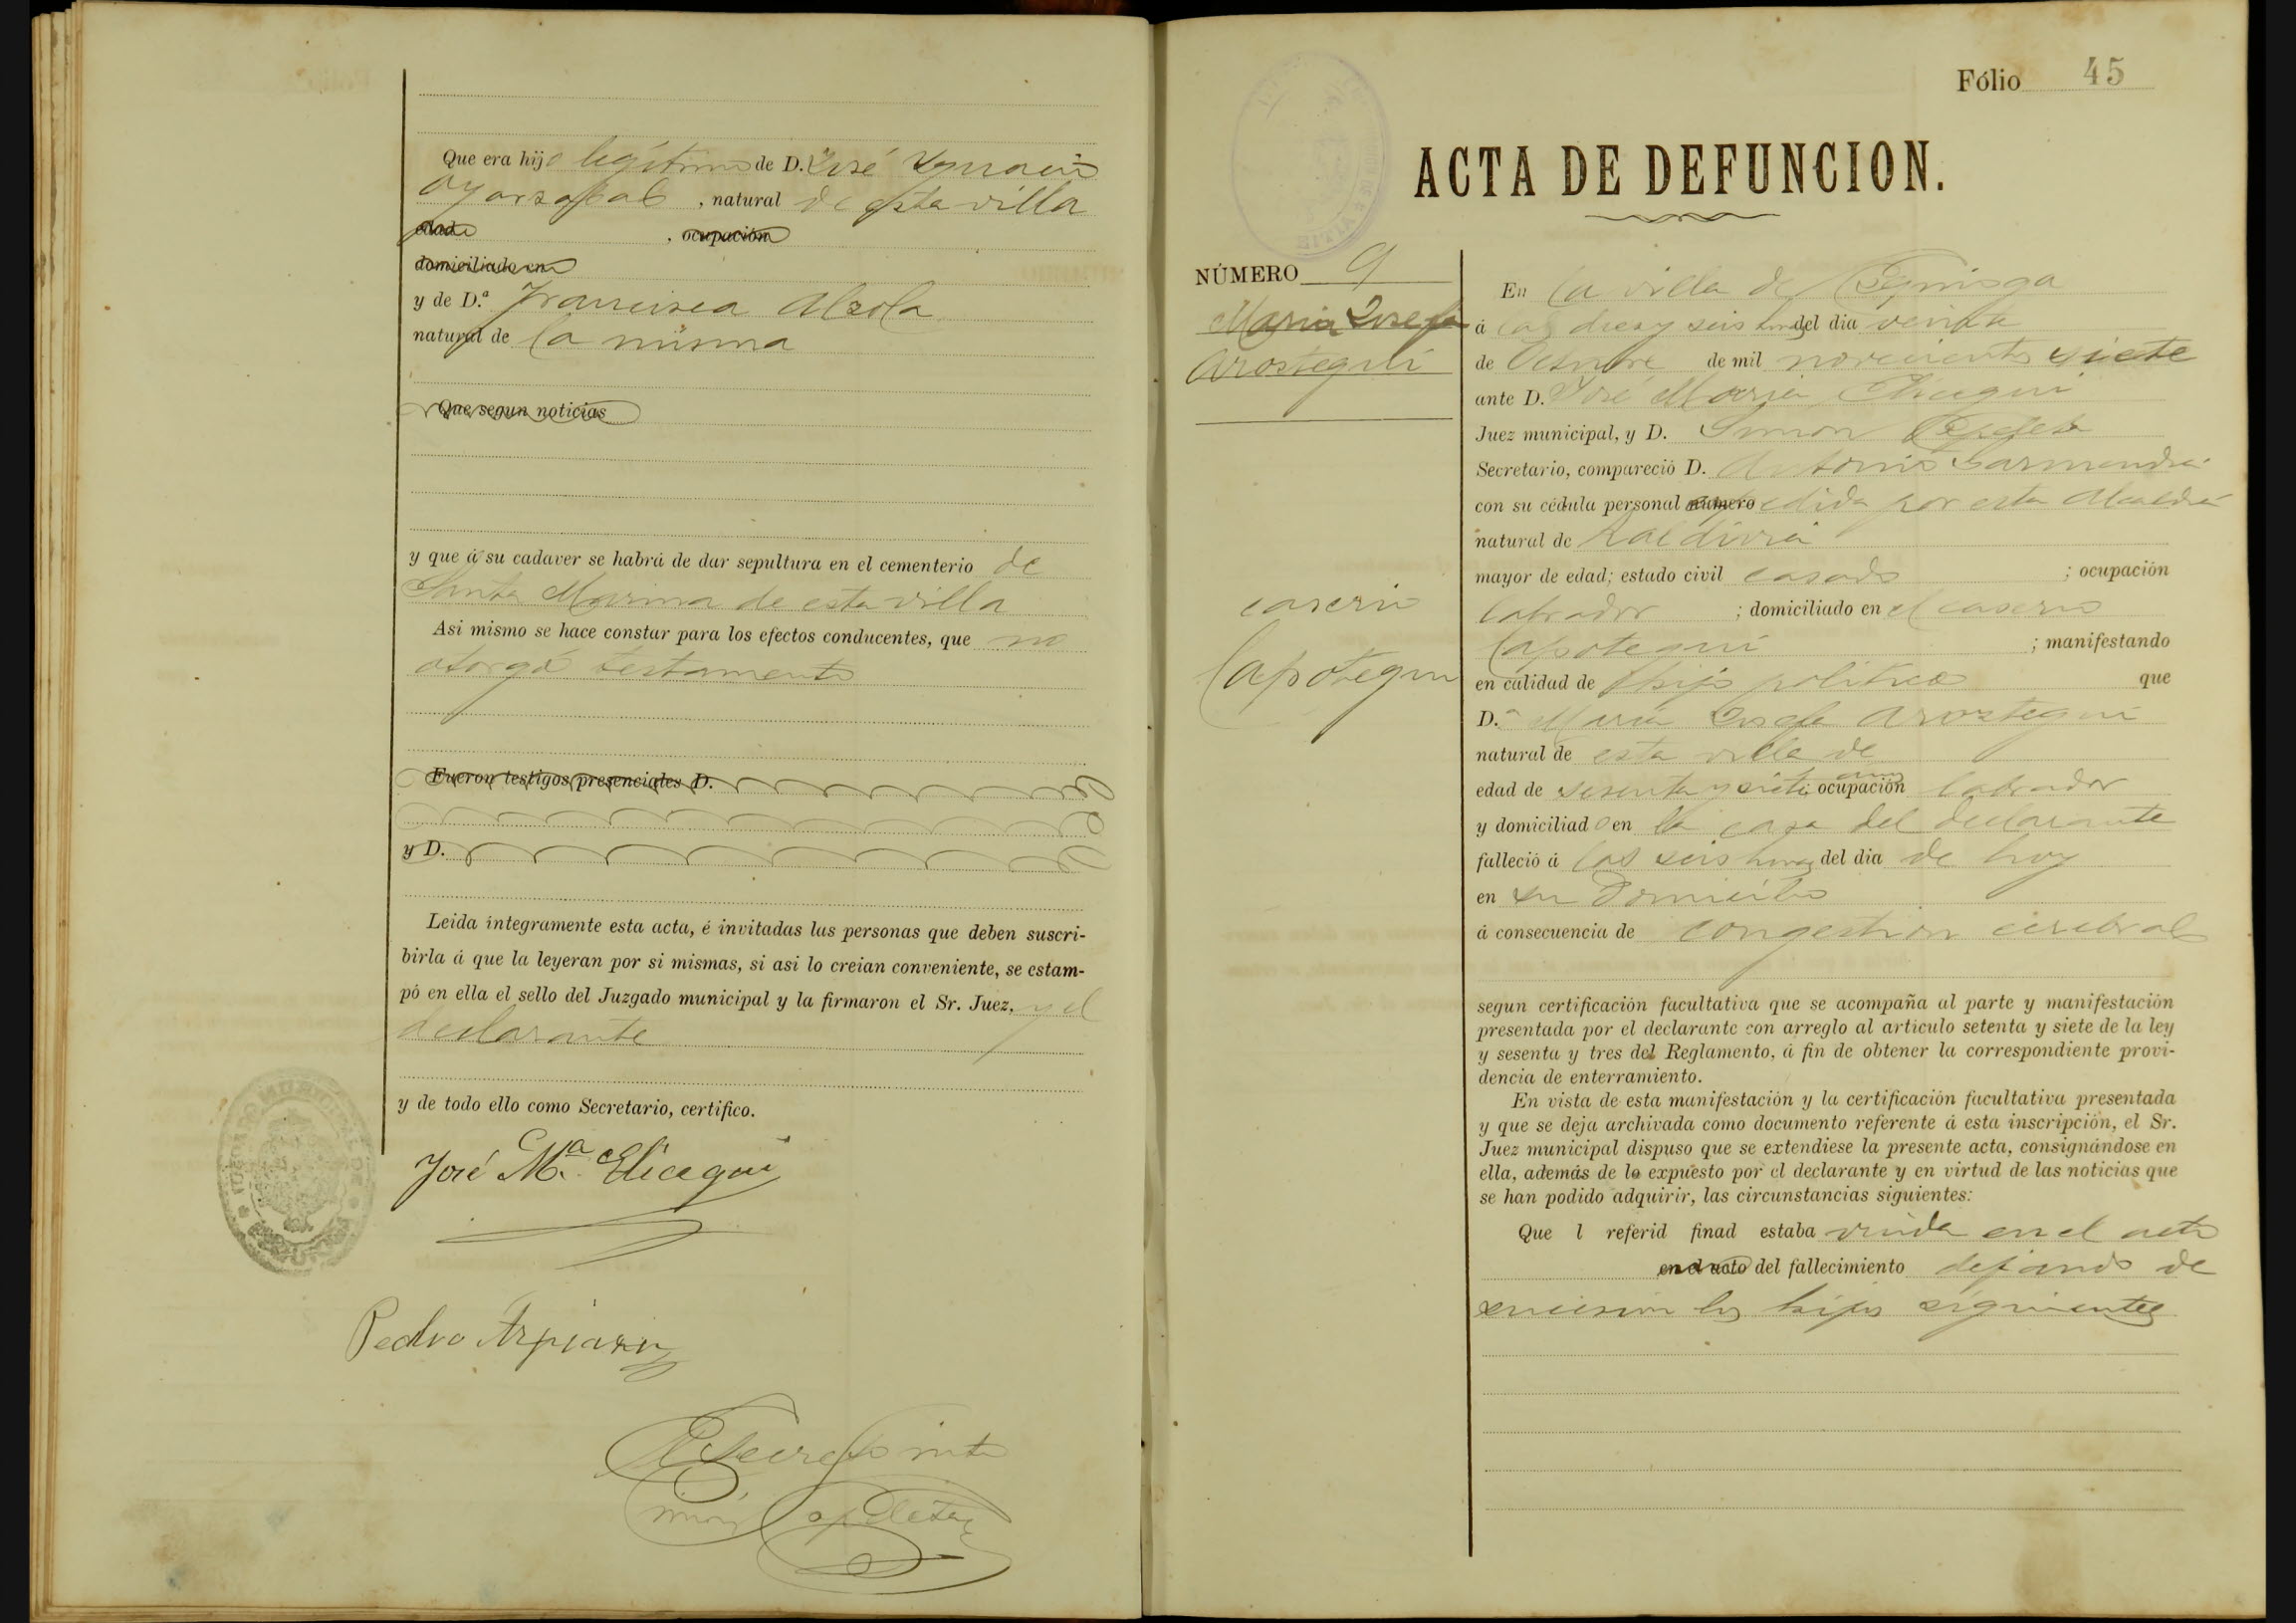 Que era hijo legítimo de D. José Ygnacio
Oyarzabal , natural de esta villa
edad , ocupación
domiciliado en
y de D.ª Francisca Alzola
natural de la misma
Que segun noticias
y que á su cadaver se habrá de dar sepultura en el cementerio de
Santa Marina de esta villa
Asi mismo se hace constar para los efectos conducentes, que no
otorgó testamento
Fueron testigos presenciales D.
y D.
Leida íntegramente esta acta, é invitadas las personas que deben suscri-
birla á que la leyeran por si mismas, si asi lo creian conveniente, se estam-
pó en ella el sello del Juzgado municipal y la firmaron el Sr. Juez, y el
declarante
y de todo ello como Secretario, certifico.
José M.ª Elicegui
Pedro Azpiazu
Fólio 45
ACTA DE DEFUNCION.
NÚMERO 9
Maria Josefa
Arostegui
caserio
Capotegui
En la villa de
á las diez y seis horas del dia veinte
de Octubre de mil novecientos siete
ante D. José Maria Elicegui
Juez municipal, y D. Simon
Secretario, compareció D. Antonio Garmendia
con su cédula personal número expedida por esta Alcaldia
natural de Zaldivia
mayor de edad; estado civil casado ; ocupación
labrador ; domiciliado en el caserio
Capotegui ; manifestando
en calidad de hijo politico que
D.ª Maria Josefa Arostegui
natural de esta villa de
edad de sesenta y siete años ocupación labrador
y domiciliado en la casa del declarante
falleció á las seis horas del dia de hoy
en su Domicilio
á consecuencia de congestion cerebral
segun certificación facultativa que se acompaña al parte y manifestación
presentada por el declarante con arreglo al articulo setenta y siete de la ley
y sesenta y tres del Reglamento, á fin de obtener la correspondiente provi-
dencia de enterramiento.
En vista de esta manifestación y la certificación facultativa presentada
y que se deja archivada como documento referente á esta inscripción, el Sr.
Juez municipal dispuso que se extendiese la presente acta, consignándose en
ella, además de lo expuesto por el declarante y en virtud de las noticias que
se han podido adquirir, las circunstancias siguientes:
Que l referid finad estaba viuda en el acto
en el acto del fallecimiento dejando de
sucesion los hijos siguientes